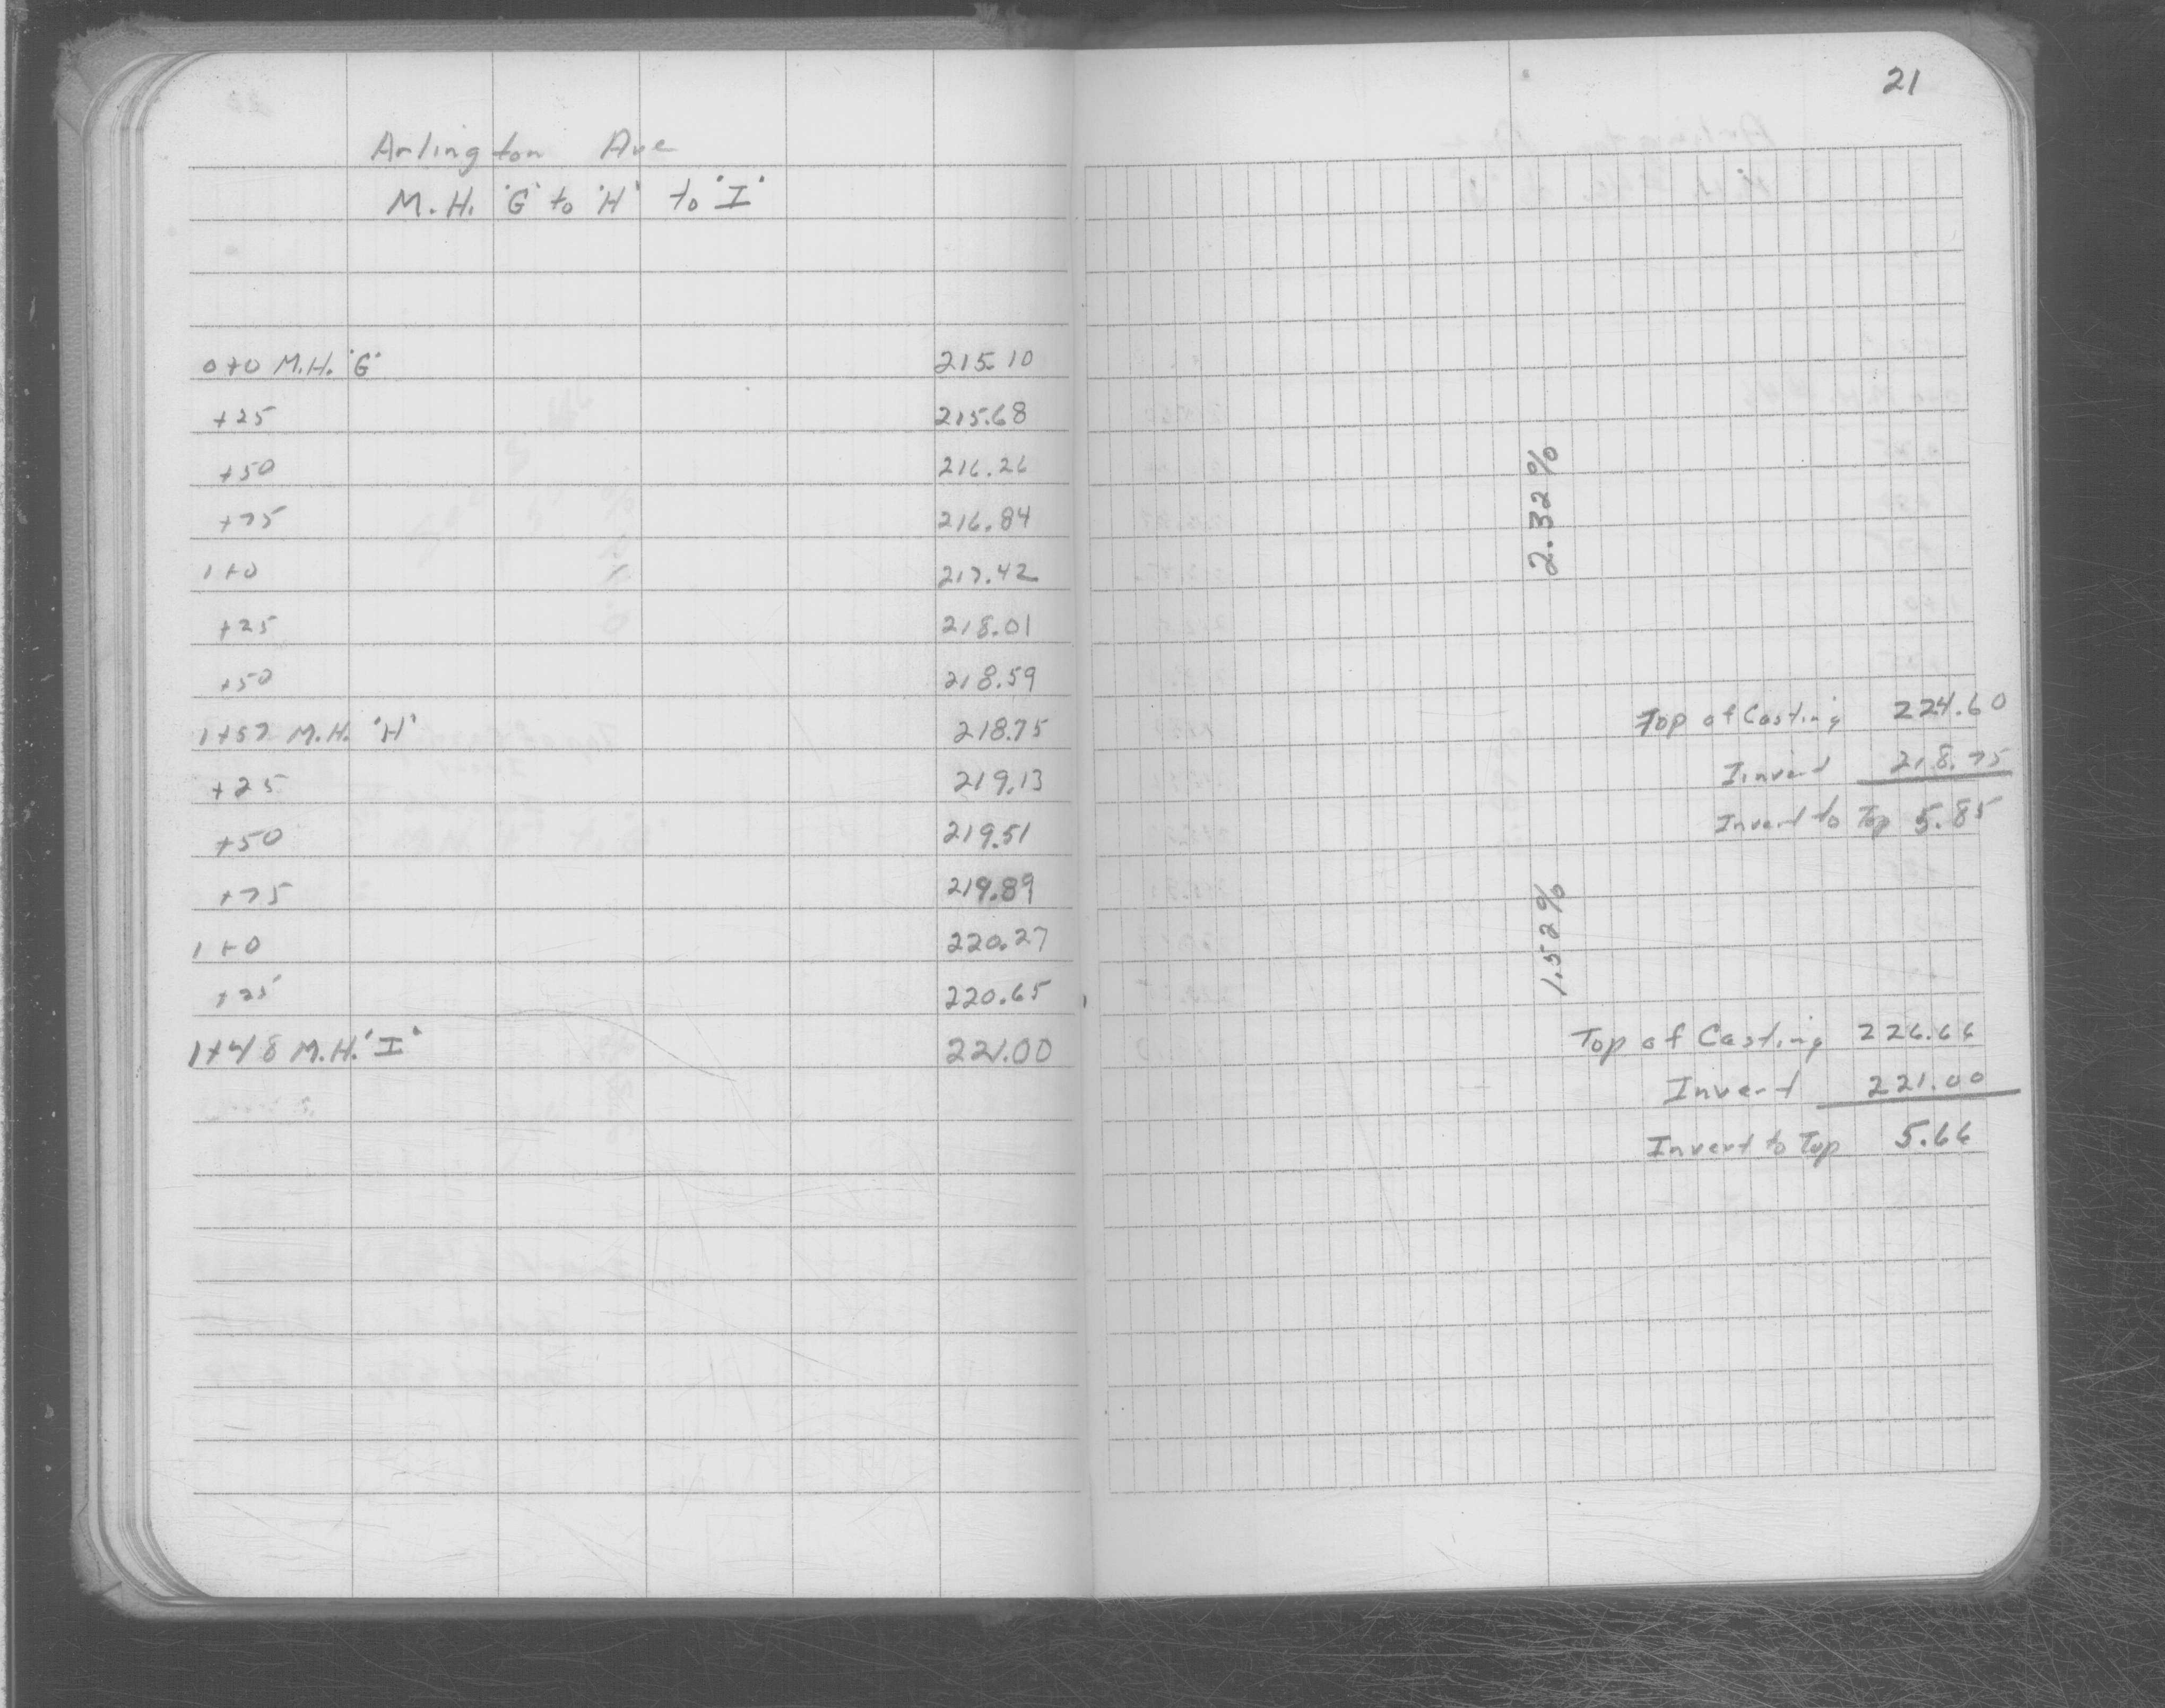 Arlington Ave
M.H. "G" to "H" to "I"
0+0 M.H. "G" 215.10
+25 215.68
+50 216.26
+75 216.84
1+0 217.42
+25 218.01
+50 218.59
1+57 M.H. "H" 218.75
+25 219.13
+50 219.51
+75 219.89
1+0 220.27
+25 220.65
1+48 M.H. "I" 221.00
21
2.32%
Top of Casting 224.60
Invert 218.75
Invert to Top 5.85
1.52%
Top of Casting 226.66
Invert 221.00
Invert to Top 5.66